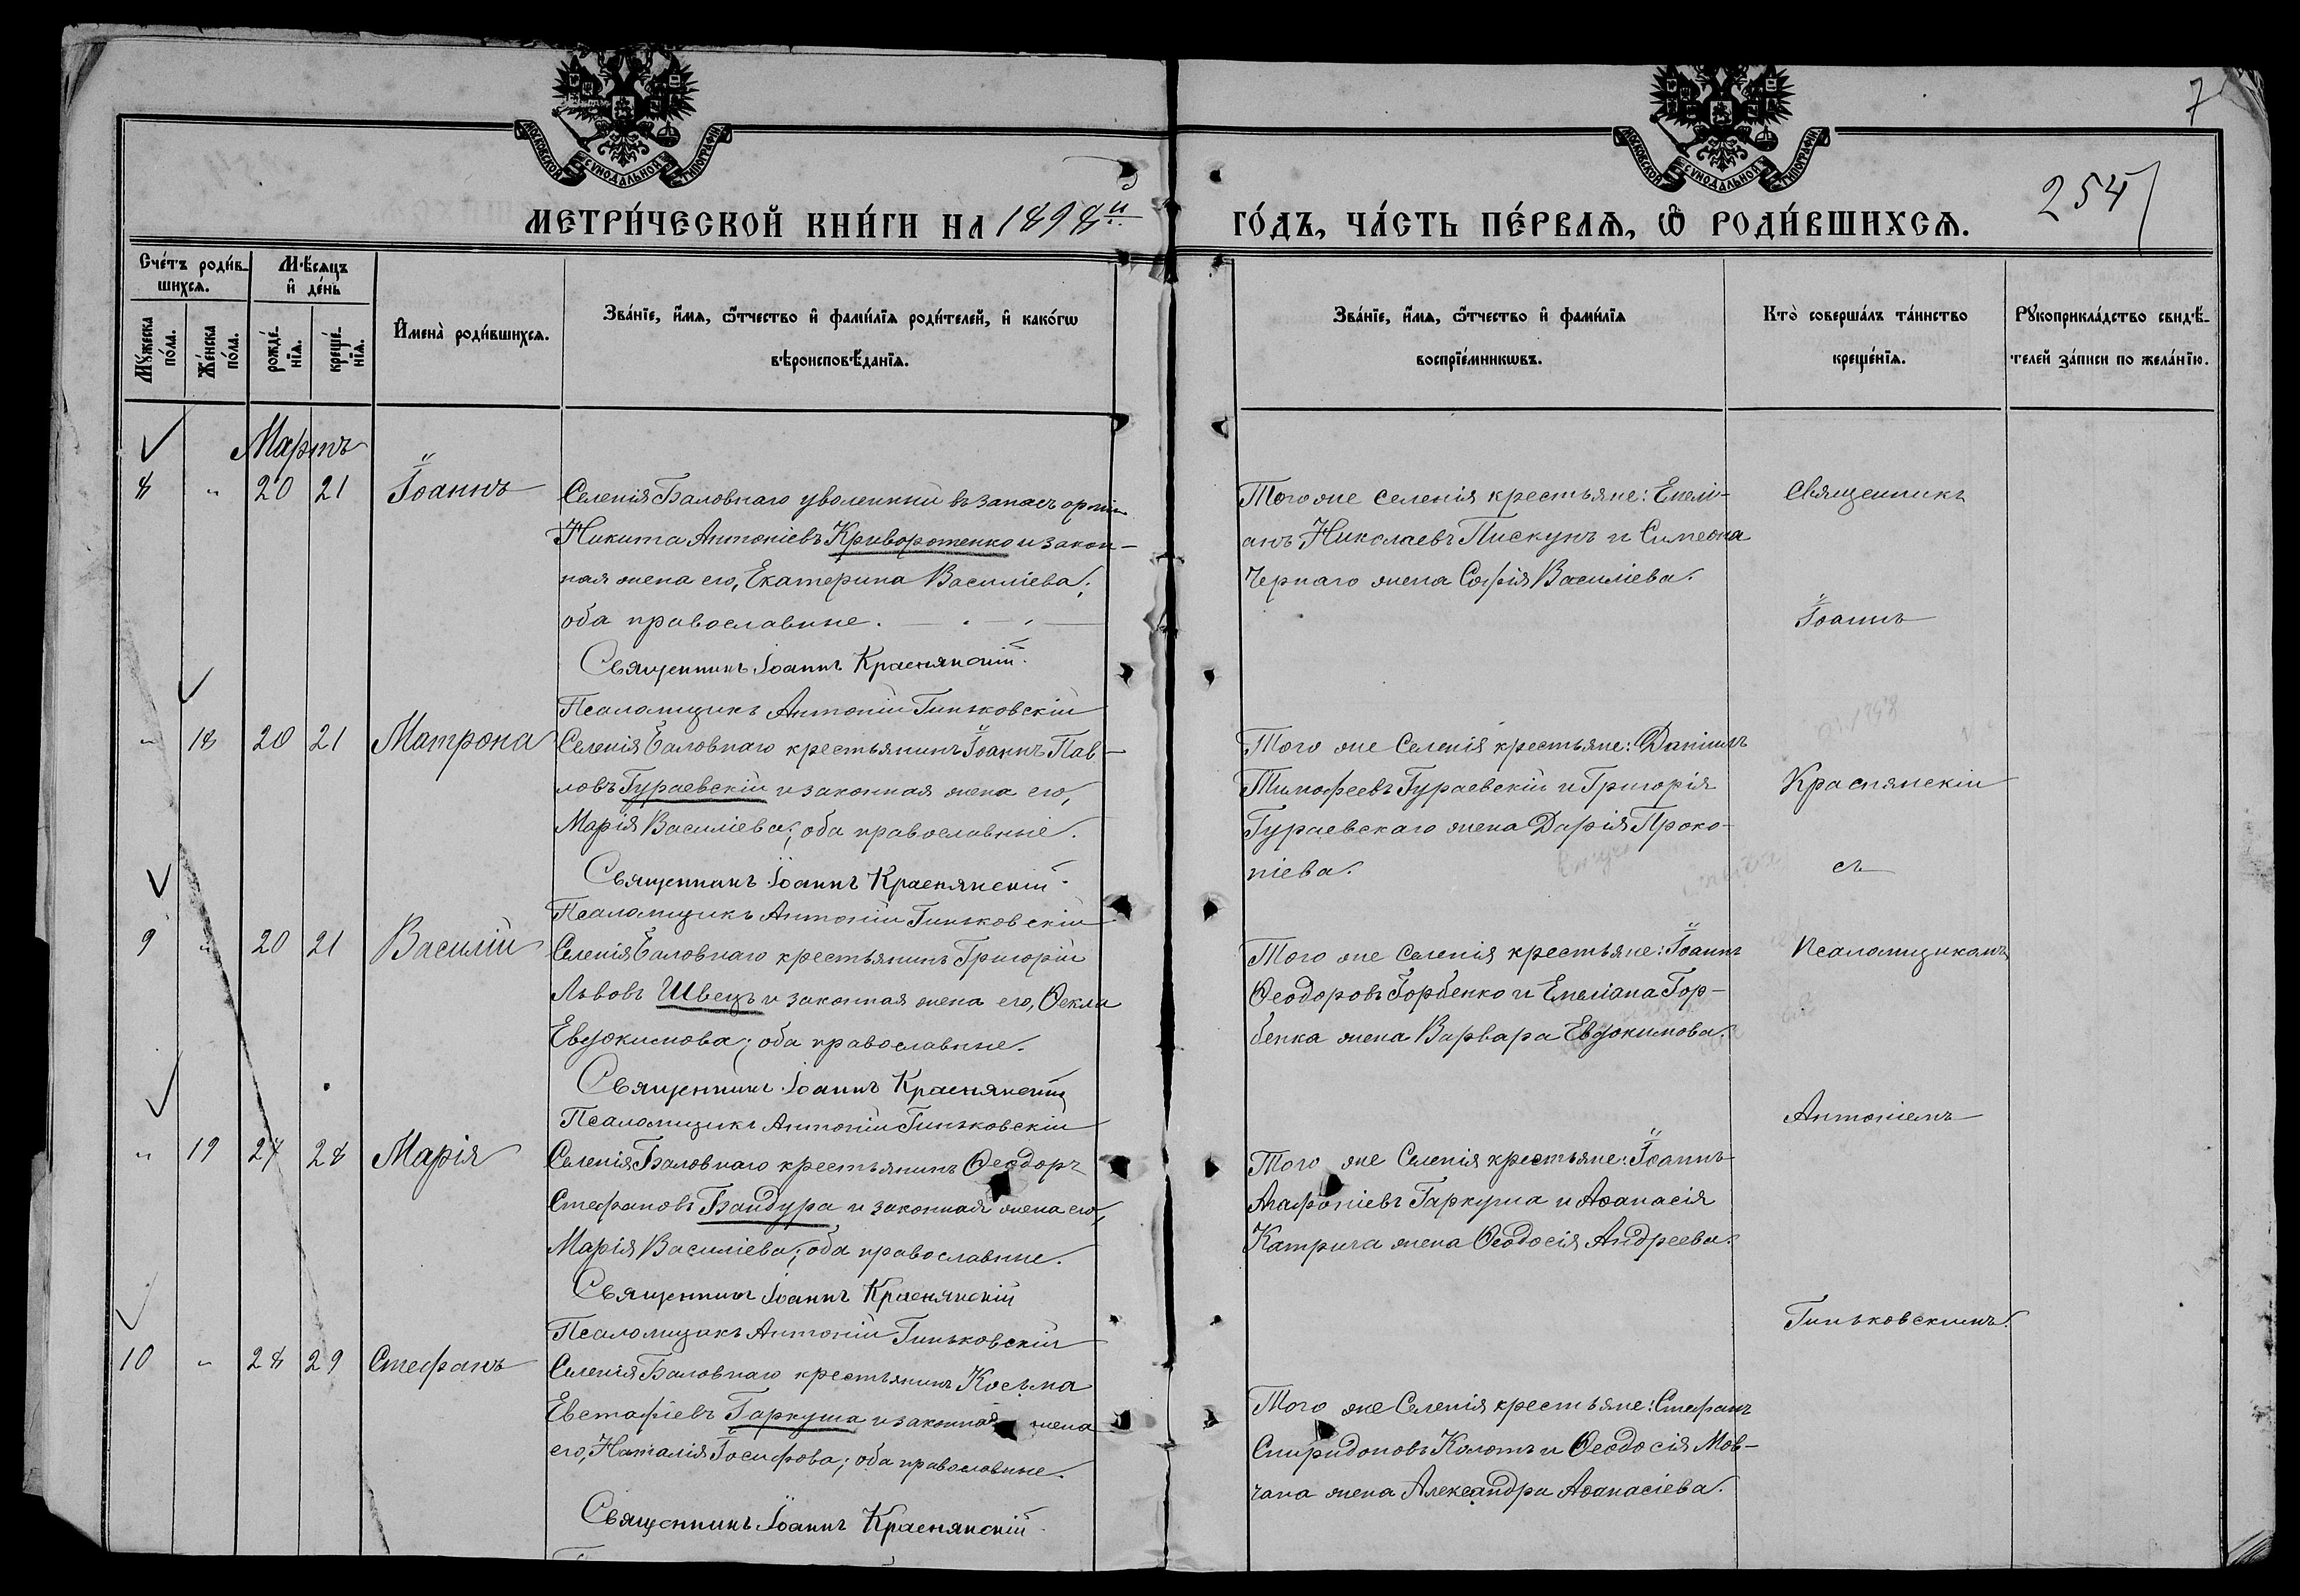 МОСКОВСКОЙ СѴНОДАЛЬНОЙ ТИПОГРАФІИ
МОСКОВСКОЙ СѴНОДАЛЬНОЙ ТИПОГРАФІИ
7
254
МЕТРИ́ЧЕСКОЙ КНИ́ГИ НА 1898й
ГО́ДЪ, ЧА́СТЬ ПЕ́РВАѦ, Ѿ РОДИ́ВШИХСѦ.
Сче́тъ роди́в-
шихсѧ.
Мѣ́сѧцъ
и҆ де́нь
Мꙋ́жеска
по́ла.
Же́нска
по́ла.
рожде́-
нїѧ.
креще́-
нїѧ.
И҆мена̀ роди́вшихсѧ.
Зва́нїе, и҆́мѧ, ѻ҆́тчество и҆ фами́лїѧ роди́телей, и҆ како́гѡ
вѣроисповѣ́данїѧ.
Зва́нїе, и҆́мѧ, ѻ҆́тчество и҆ фами́лїѧ
воспрїе́мникѡвъ.
Кто̀ соверша́лъ та́инство
креще́нїѧ.
Рꙋкоприкла́дство свидѣ́-
телей за́писи по жела́нїю.
Мартъ
8 " 20 21 Іоаннъ
Селенія Баловнаго уволенный въ запасъ арміи
Никита Антоніевъ Кривротенко и закон-
ная жена его, Екатерина Василіева;
оба православные.
Священникъ Іоаннъ Краснянскій.
Псаломщикъ Антоній Гиньковскій
Того же селенія крестьяне: Емелі-
анъ Николаевъ Пискунъ и Симеона
Чернаго жена Софія Василіева.
" 18 20 21 Матрона
Селенія Баловнаго крестьянинъ Іоаннъ Пав-
ловъ Гураевскій и законная жена его,
Марія Василіева; оба православные.
Священникъ Іоаннъ Краснянскій.
Псаломщикъ Антоній Гиньковскій
Того же Селенія крестьяне: Даніилъ
Тимофеевъ Гураевскій и Григорія
Гураевскаго жена Дарія Проко-
піева.
9 " 20 21 Василій
Селенія Баловнаго крестьянинъ Григорій
Львовъ Швецъ и законная жена его, Ѳекла
Евдокимова; оба православные.
Священникъ Іоаннъ Краснянскій
Псаломщикъ Антоній Гиньковскій
Того же Селенія крестьяне: Іоаннъ
Ѳеодоровъ Горбенко и Емеліана Гор-
бенка жена Варвара Евдокимова.
" 19 27 28 Марія
Селенія Баловнаго крестьянинъ Ѳеодоръ
Стефановъ Бандура и законная жена его,
Марія Василіева; оба православные.
Священникъ Іоаннъ Краснянскій
Псаломщикъ Антоній Гиньковскій
Того же Селенія крестьяне: Іоаннъ
Агафоніевъ Гаркуша и Аѳанасія
Катрича жена Ѳеодосія Андреева.
10 " 28 29 Стефанъ
Селенія Баловнаго крестьянинъ Косьма
Евстафіевъ Гаркуша и законная жена
его, Наталія Іосифова; оба православные.
Священникъ Іоаннъ Краснянскій.
Того же Селенія крестьяне: Стефанъ
Спиридоновъ Колотъ и Ѳеодосія Мов-
чана жена Александра Аѳанасіева.
Священникъ
Іоаннъ
Краснянскій
съ
Псаломщикомъ
Антоніемъ
Гиньковскимъ.